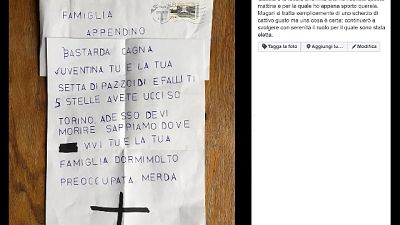 FAMIGLIA
APPENDINO
BASTARDA CAGNA
JUVENTINA TU E LA TUA
SETTA DI PAZZOIDI E FALLITI
5 STELLE AVETE UCCISO
TORINO. ADESSO DEVI
MORIRE SAPPIAMO DOVE
VIVI TU E LA TUA
FAMIGLIA DORMI MOLTO
PREOCCUPATA MERDA
mattina e per la quale ho appena sporto querela.
Magari si tratta semplicemente di uno scherzo di
cattivo gusto ma una cosa è certa: continuerò a
svolgere con serenità il ruolo per il quale sono stata
eletta.
Tagga le foto
Aggiungi lu...
Modifica